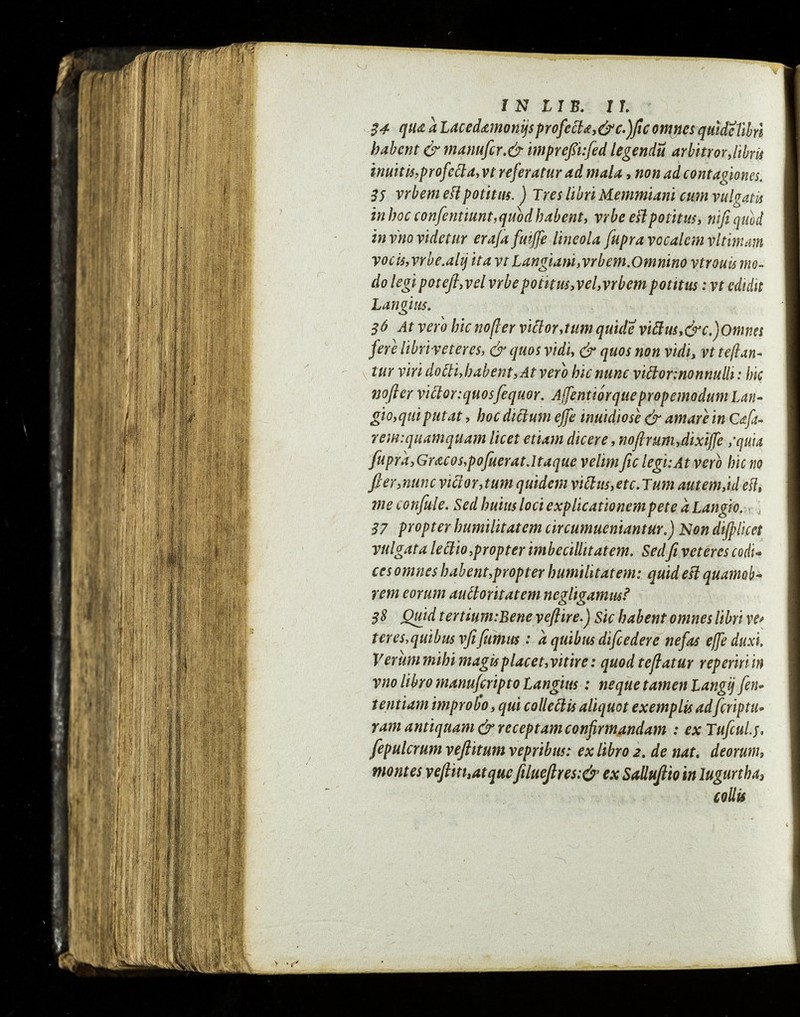 IN LIB. II.
34 quæ à Lacedæmonijs profecta,&c.)sic omnes quidē libri
habent & manuscr.& impreßi:sed legendū arbitror,libris
inuitis,profecta,vt referatur ad mala, non ad contagiones.
35 vrbem est potitus.) Tres libri Memmiani cum vulgatis
in hoc consentiunt,quòd habent, vrbe est potitus, nisi quòd
in vno videtur erasa fuisse lineola supra vocalem vltimam
vocis,vrbe.alij ita vt Langiani,vrbem.Omnino vtrouis mo-
do legi potest,vel vrbe potitus,vel,vrbem potitus: vt edidit
Langius.
36 At verò hic noster victor,tum quidē victus,&c.)Omnes
ferè libri veteres, & quos vidi, & quos non vidi, vt testan-
tur viri docti,habent,At verò hic nunc victor:nonnulli: hic
noster victor:quos sequor. Assentiórque propemodum Lan-
gio,qui putat, hoc dictum esse inuidiosè & amarè in Cæsa-
rem:quamquam licet etiam dicere, nostrum,dixisse ,quia
suprà,Græcos,posuerat.Itaque velim sic legi:At verò hic no
ster,nunc victor,tum quidem victus,etc.Tum autem,id est,
me consule. Sed huius loci explicationem pete à Langio.
37 propter humilitatem circumueniantur.) Non displicet
vulgata lectio,propter imbecillitatem. Sed si veteres codi-
ces omnes habent,propter humilitatem: quid est quamob-
rem eorum auctoritatem negligamus?
38 Quid tertium:Bene vestire.) Sic habent omnes libri ve-
teres,quibus vsi sumus: à quibus discedere nefas esse duxi.
Verùm mihi magis placet,vitire: quod testatur reperiri in
vno libro manuscripto Langius: neque tamen Langij sen-
tentiam improbo, qui collectis aliquot exemplis ad scriptu-
ram antiquam & receptam confirmandam: ex Tuscul.5.
sepulcrum vestitum vepribus: ex libro 2. de nat. deorum,
montes vestiti,atque siluestres:& ex Sallustio in Iugurtha,
collis